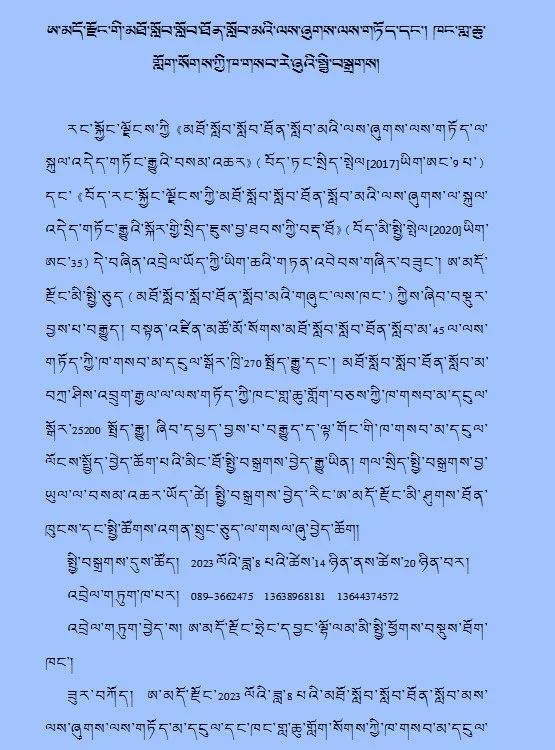 ཨ་མདོ་རྫོང་གི་མཐོ་སློབ་སློབ་ཐོན་སློབ་མའི་ལས་ཞུགས་ལས་གཏོད་དང་། ཁང་གླ་ཆུ་
གློག་སོགས་ཀྱི་ཁ་གསབ་རེ་ཞུའི་སྤྱི་བསྒྲགས།
རང་སྐྱོང་ལྗོངས་ཀྱི《མཐོ་སློབ་སློབ་ཐོན་སློབ་མའི་ལས་ཞུགས་ལས་གཏོད་ལ་
སྐུལ་འདེད་གཏོང་རྒྱུའི་བསམ་འཆར》(བོད་ཏང་སྲིད་སྤེལ[2017]ཡིག་ཨང་9པ་)
དང་《བོད་རང་སྐྱོང་ལྗོངས་ཀྱི་མཐོ་སློབ་སློབ་ཐོན་སློབ་མའི་ལས་ཞུགས་ལ་སྐུལ་
འདེད་གཏོང་རྒྱུའི་སྐོར་གྱི་སྲིད་ཇུས་བྱ་ཐབས་ཀྱི་བརྡ་ཐོ》(བོད་མི་སྤྱི་སྤེལ[2020]ཡིག་
ཨང་35) དེ་བཞིན་འབྲེལ་ཡོད་ཀྱི་ཡིག་ཆའི་གཏན་འབེབས་གཞིར་བཟུང་། ཨ་མདོ་
རྫོང་མི་སྤྱི་ཅུད (མཐོ་སློབ་སློབ་ཐོན་སློབ་མའི་གཞུང་ལས་ཁང་) ཀྱིས་ཞིབ་བསྡུར་
བྱས་པ་བརྒྱུད། བསྟན་འཛིན་མཚོ་མོ་སོགས་མཐོ་སློབ་སློབ་ཐོན་སློབ་མ་45ལ་ལས་
གཏོད་ཀྱི་ཁ་གསབ་མ་དངུལ་སྒོར་ཁྲི་270སྤྲོད་རྒྱུ་དང་། མཐོ་སློབ་སློབ་ཐོན་སློབ་མ་
བཀྲ་ཤིས་འབྲུག་རྒྱལ་ལ་ལས་གཏོད་ཀྱི་ཁང་གླ་ཆུ་གློག་བཅས་ཀྱི་ཁ་གསབ་མ་དངུལ་
སྒོར་25200 སྤྲོད་རྒྱུ། ཞིབ་དཔྱད་བྱས་པ་བརྒྱུད་ད་ལྟ་གོང་གི་ཁ་གསབ་མ་དངུལ་
ལོངས་སྤྱོད་བྱེད་ཆོག་པའི་མིང་ཐོ་སྤྱི་བསྒྲགས་བྱེད་རྒྱུ་ཡིན། གལ་སྲིད་སྤྱི་བསྒྲགས་བྱ་
ཡུལ་ལ་བསམ་འཆར་ཡོད་ཚེ། སྤྱི་བསྒྲགས་བྱེད་རིང་ཨ་མདོ་རྫོང་མི་ཤུགས་ཐོན་
ཁུངས་དང་སྤྱི་ཚོགས་འགན་སྲུང་ཅུད་ལ་གསལ་ཞུ་བྱེད་ཆོག།
སྤྱི་བསྒྲགས་དུས་ཚོད། 2023 ལོའི་ཟླ་8 པའི་ཚེས་14 ཉིན་ནས་ཚེས་20 ཉིན་བར།
འབྲེལ་གཏུག་ཁ་པར། 089-3662475 13638968181 13644374572
འབྲེལ་གཏུག་བྱེད་ས། ཨ་མདོ་རྫོང་ཧྲེང་དབྱང་ལྷོ་ལམ་མི་སྤྱི་ཕྱོགས་བསྡུས་ཐོག་
ཁང་།
ཟུར་བཀོད། ཨ་མདོ་རྫོང་2023 ལོའི་ཟླ་8 པའི་མཐོ་སློབ་སློབ་ཐོན་སློབ་མས་
ལས་ཞུགས་ལས་གཏོད་མ་དངུལ་དང་ཁང་གླ་ཆུ་གློག་སོགས་ཀྱི་ཁ་གསབ་མ་དངུལ་